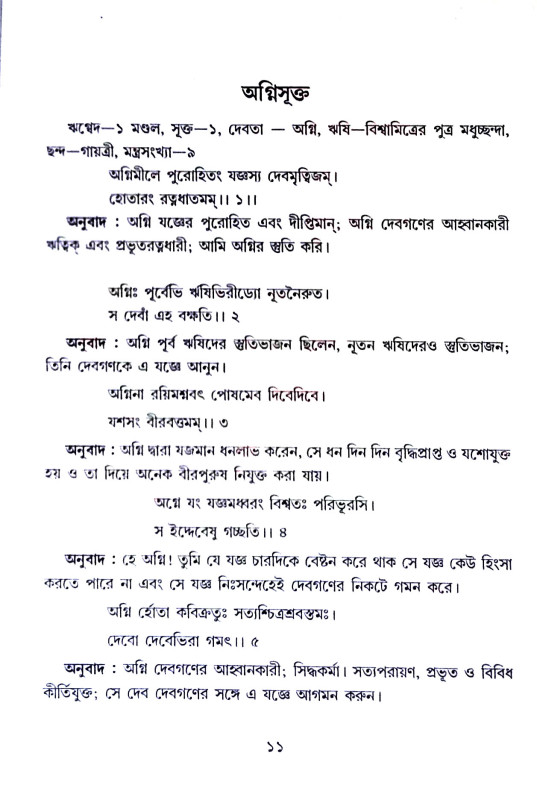 অগ্নিসূক্ত
ঋগ্বেদ—১ মণ্ডল, সূক্ত—১, দেবতা — অগ্নি, ঋষি—বিশ্বামিত্রের পুত্র মধুচ্ছন্দা,
ছন্দ—গায়ত্রী, মন্ত্রসংখ্যা—৯
অগ্নিমীলে পুরোহিতং যজ্ঞস্য দেবমৃত্বিজম্।
হোতারং রত্নধাতমম্।। ১।।
অনুবাদ : অগ্নি যজ্ঞের পুরোহিত এবং দীপ্তিমান্; অগ্নি দেবগণের আহ্বানকারী
ঋত্বিক্ এবং প্রভূতরত্নধারী; আমি অগ্নির স্তুতি করি।
অগ্নিঃ পূর্বেভি ঋষিভিরীড্যো নূতনৈরুত।
স দেবাঁ এহ বক্ষতি।। ২
অনুবাদ : অগ্নি পূর্ব ঋষিদের স্তুতিভাজন ছিলেন, নূতন ঋষিদেরও স্তুতিভাজন;
তিনি দেবগণকে এ যজ্ঞে আনুন।
অগ্নিনা রয়িমশ্নবৎ পোষমেব দিবেদিবে।
যশসং বীরবত্তমম্।। ৩
অনুবাদ : অগ্নি দ্বারা যজমান ধনলাভ করেন, সে ধন দিন দিন বৃদ্ধিপ্রাপ্ত ও যশোযুক্ত
হয় ও তা দিয়ে অনেক বীরপুরুষ নিযুক্ত করা যায়।
অগ্নে যং যজ্ঞমধ্বরং বিশ্বতঃ পরিভূরসি।
স ইদ্দেবেষু গচ্ছতি।। ৪
অনুবাদ : হে অগ্নি! তুমি যে যজ্ঞ চারদিকে বেষ্টন করে থাক সে যজ্ঞ কেউ হিংসা
করতে পারে না এবং সে যজ্ঞ নিঃসন্দেহেই দেবগণের নিকটে গমন করে।
অগ্নি র্হোতা কবিক্রতুঃ সত্যশ্চিত্রশ্রবস্তমঃ।
দেবো দেবেভিরা গমৎ।। ৫
অনুবাদ : অগ্নি দেবগণের আহ্বানকারী; সিদ্ধকর্মা। সত্যপরায়ণ, প্রভূত ও বিবিধ
কীর্তিযুক্ত; সে দেব দেবগণের সঙ্গে এ যজ্ঞে আগমন করুন।
১১